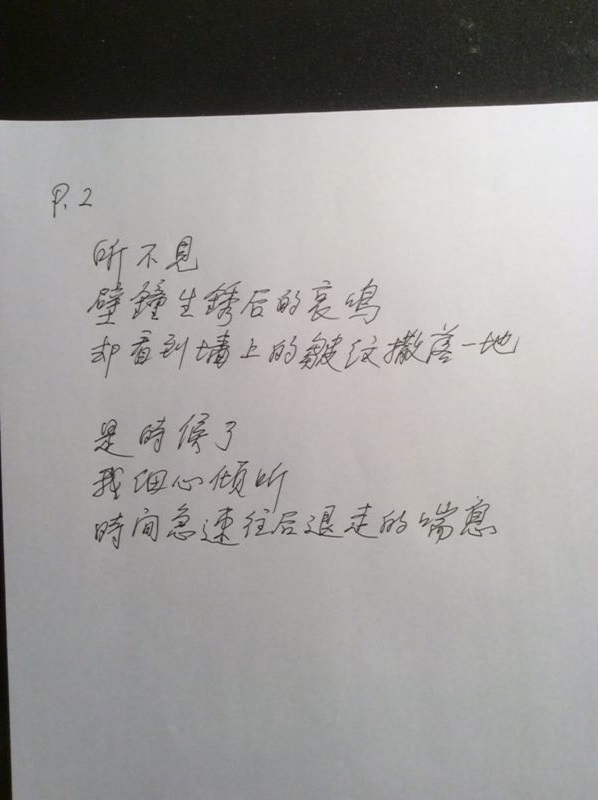 P.2
听不見
壁鐘生銹后的哀鳴
却看到墻上的皺紋撒落一地
是時候了
我细心傾听
時间急速往后退走的喘息